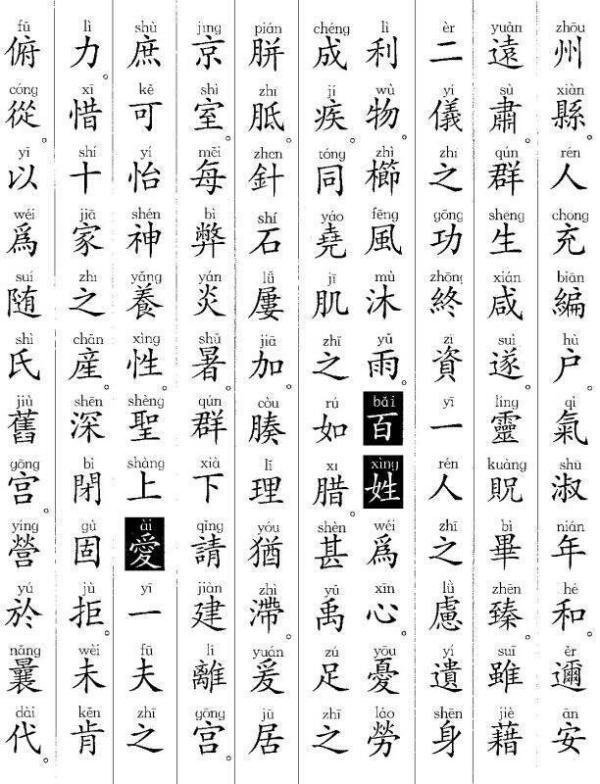 zhōu州 xiàn縣。 rén人 chōng充 biān編 hù户。 qì氣 shū淑 nián年 hé和。 ěr邇 ān安
yuǎn遠 sù肅。 qún群 shēng生 xián咸 suì遂。 líng靈 kuàng貺 bì畢 zhēn臻。 suī雖 jiè藉
èr二 yí儀 zhī之 gōng功 zhōng終 zī資 yī一 rén人 zhī之 lǜ慮 yí遺 shēn身
lì利 wù物。 zhì櫛 fēng風 mù沐 yǔ雨。 bǎi百 xìng姓 wéi爲 xīn心。 yōu憂 láo勞
chéng成 jí疾。 tóng同 yáo堯 jī肌 zhī之 rú如 xī腊。 shèn甚 yǔ禹 zú足 zhī之
pián胼 zhī胝。 zhēn針 shí石 lǚ屢 jiā加。 còu腠 lǐ理 yóu猶 zhì滯。 yuán爰 jū居
jīng京 shì室。 měi每 bì弊 yán炎 shǔ暑。 qún群 xià下 qǐng請 jiàn建 lí離 gōng宮。
shù庶 kě可 yí怡 shén神 yǎng養 xìng性。 shèng聖 shàng上 ài愛 yī一 fū夫 zhī之
lì力。 xī惜 shí十 jiā家 zhī之 chǎn産。 shēn深 bì閉 gù固 jù拒。 wèi未 kěn肯
fǔ俯 cóng從。 yǐ以 wéi爲 suí随 shì氏 jiù舊 gōng宮。 yíng營 yú於 nǎng曩 dài代。